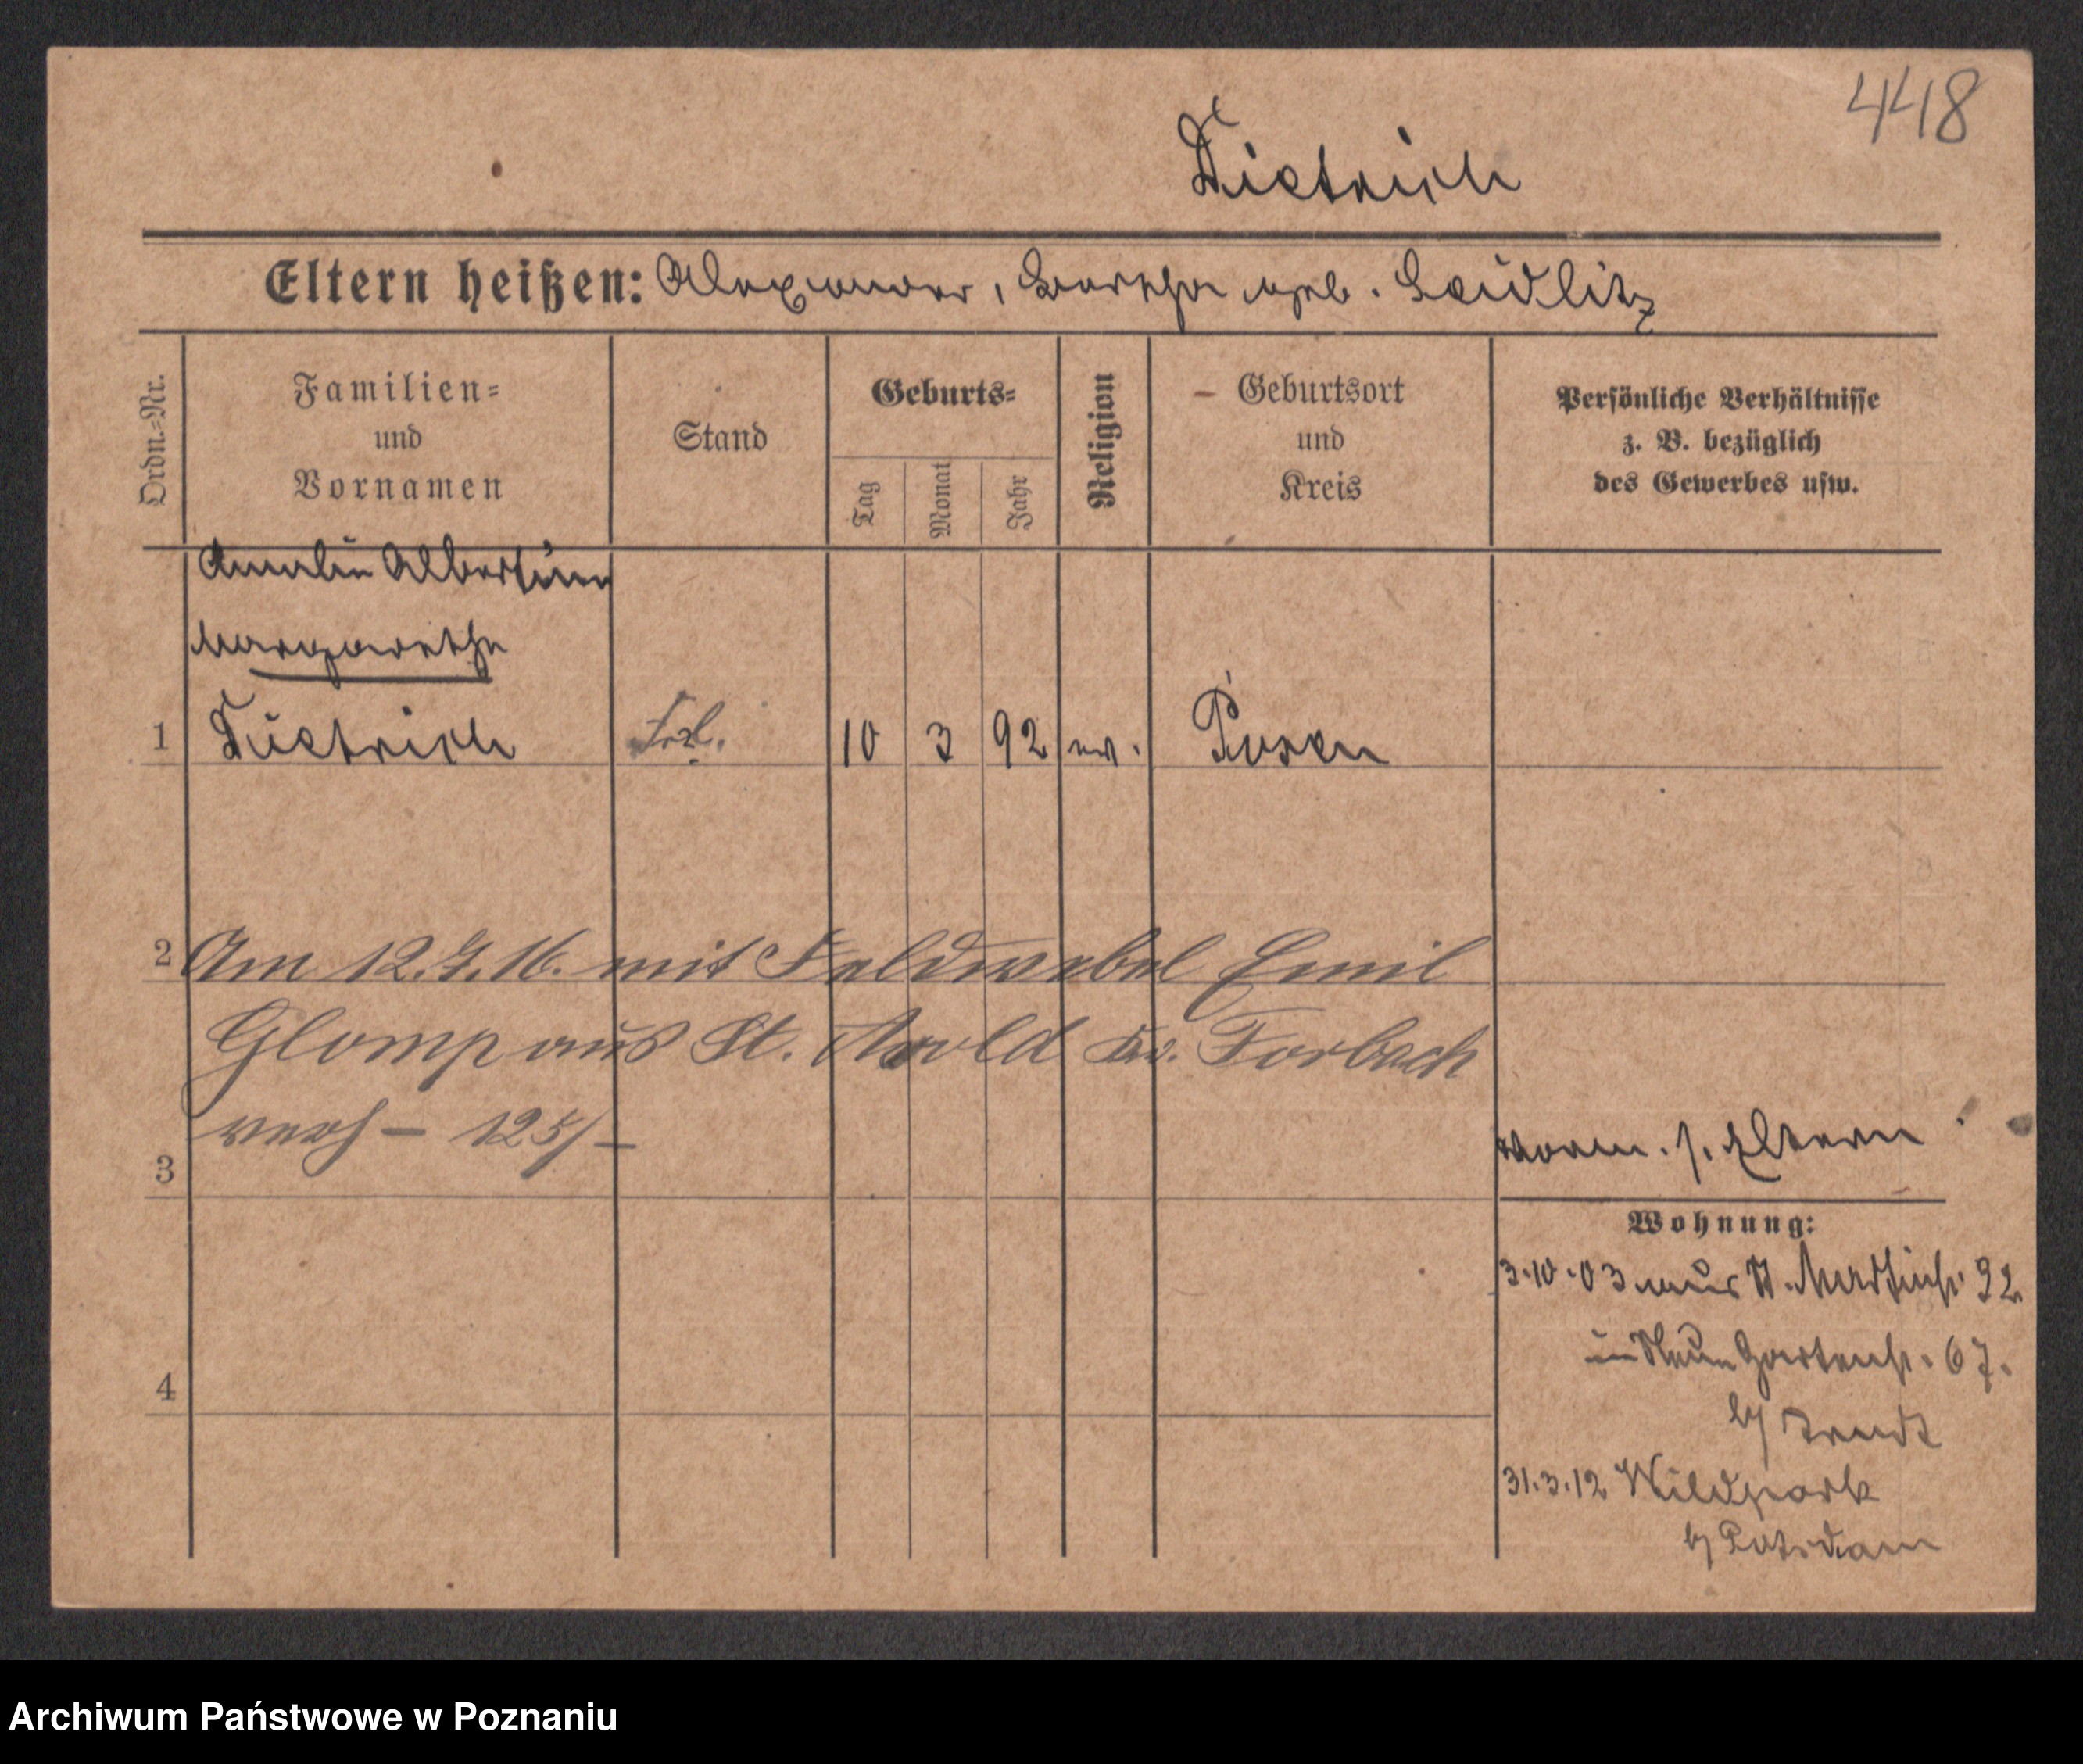 448
Dietrich
Eltern heißen: Alexander, Bertha geb. Seidlitz
Ordn.-Nr.
Familien-
und
Vornamen
Stand
Geburts-
Tag
Monat
Jahr
Religion
Geburtsort
und
Kreis
Persönliche Verhältnisse
z. B. bezüglich
des Gewerbes usw.
Amalie Albertine
Margarethe
1 Dietrich Frl. 10 3 92 ev. Posen
2 Am 12.7.16. mit Feldwebel Emil
Glomp aus St. Avold Kr. Forbach
verh – 125/–
3
4
vorm. s. Eltern
Wohnung:
3.10.03 aus St. Martinstr. 32
in Neue Gartenstr. 67.
b/
31.3.12 Wildpark
b/ Potsdam
Archiwum Państwowe w Poznaniu